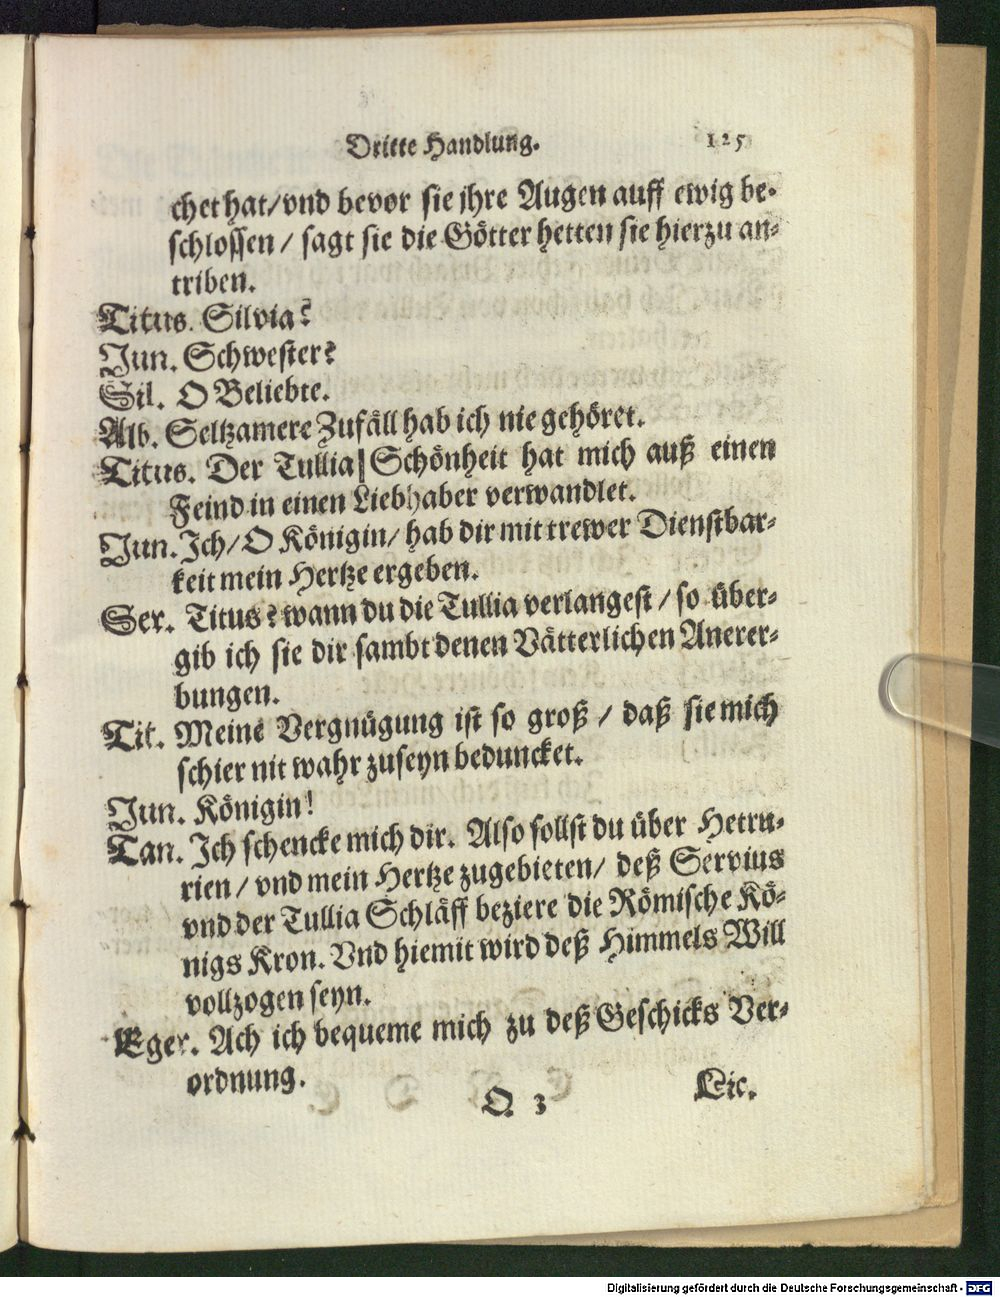 Dritte Handlung. 125
chet hat/vnd bevor sie jhre Augen auff ewig be-
schlossen / sagt sie die Götter hetten sie hierzu an-
triben.
Titus. Silvia?
Jun. Schwester?
Sil. O Beliebte.
Alb. Seltzamere Zufäll hab ich nie gehöret.
Titus. Der Tullia Schönheit hat mich auß einen
Feind in einen Liebhaber verwandlet.
Jun. Ich/ O Königin/ hab dir mit trewer Dienstbar-
keit mein Hertze ergeben.
Ser. Titus? wann du die Tullia verlangest / so über-
gib ich sie dir sambt denen Vätterlichen Anerer-
bungen.
Tit. Meine Vergnügung ist so groß / daß sie mich
schier nit wahr zuseyn beduncket.
Jun. Königin!
Tan. Ich schencke mich dir. Also sollst du über Hetru-
rien / vnd mein Hertze zugebieten/ deß Servius
vnd der Tullia Schläff beziere die Römische Kö-
nigs Kron. Vnd hiemit wird deß Himmels Will
vollzogen seyn.
Eger. Ach ich bequeme mich zu deß Geschicks Ver-
ordnung.
Q 3 Lic.
Digitalisierung gefördert durch die Deutsche Forschungsgemeinschaft - DFG